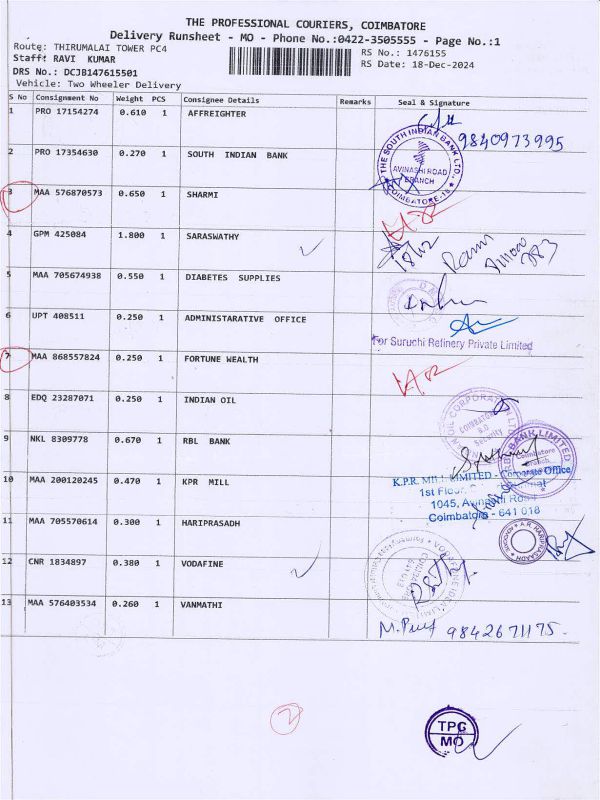 THE PROFESSIONAL COURIERS, COIMBATORE
Delivery Runsheet - MO - Phone No.:0422-3505555 - Page No.:1
Route: THIRUMALAI TOWER PC4
RS No.: 1476155
Staff: RAVI KUMAR
RS Date: 18-Dec-2024
DRS No.: DCJB147615501
Vehicle: Two Wheeler Delivery
S No Consignment No Weight PCS Consignee Details Remarks Seal & Signature
1 PRO 17154274 0.610 1 AFFREIGHTER
9840973995
2 PRO 17354630 0.270 1 SOUTH INDIAN BANK
THE SOUTH INDIAN BANK LTD.,
AVINASHI ROAD
BRANCH
COIMBATORE-18
3 MAA 576870573 0.650 1 SHARMI
4 GPM 425084 1.800 1 SARASWATHY
18/12
5 MAA 705674938 0.550 1 DIABETES SUPPLIES
6 UPT 408511 0.250 1 ADMINISTARATIVE OFFICE
For Suruchi Refinery Private Limited
7 MAA 868557824 0.250 1 FORTUNE WEALTH
8 EDQ 23287071 0.250 1 INDIAN OIL
COIMBATORE
Security
9 NKL 8309778 0.670 1 RBL BANK
RBL BANK LIMITED
Coimbatore
Branch
10 MAA 200120245 0.470 1 KPR MILL
K.P.R. MILL LIMITED - Corporate Office
1st Floor,
1045, Avinashi Road
Coimbatore - 641 018
11 MAA 705570614 0.300 1 HARIPRASADH
12 CNR 1834897 0.380 1 VODAFINE
VODAFONE IDEA LIMITED
13 MAA 576403534 0.260 1 VANMATHI
9842671175
2
TPC
MO